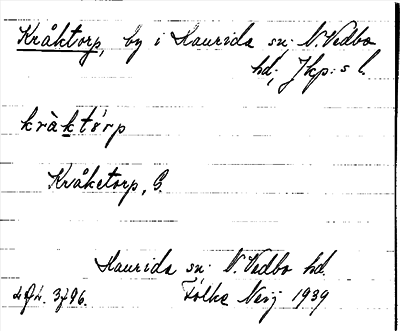 Kråktorp, by i Haurida sn. N. Vedbo
hd; Jkp:s l.
kràktórp
Kråketorp, G.
Haurida sn. N. Vedbo hd.
Folke Neij 1939